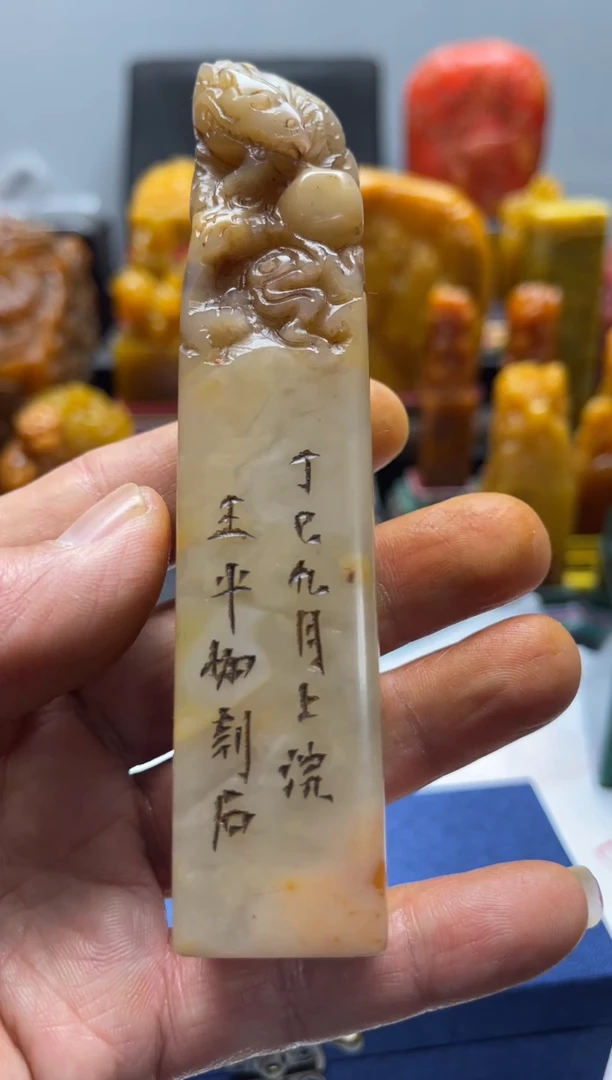 丁巳九月上浣
王平 刻石